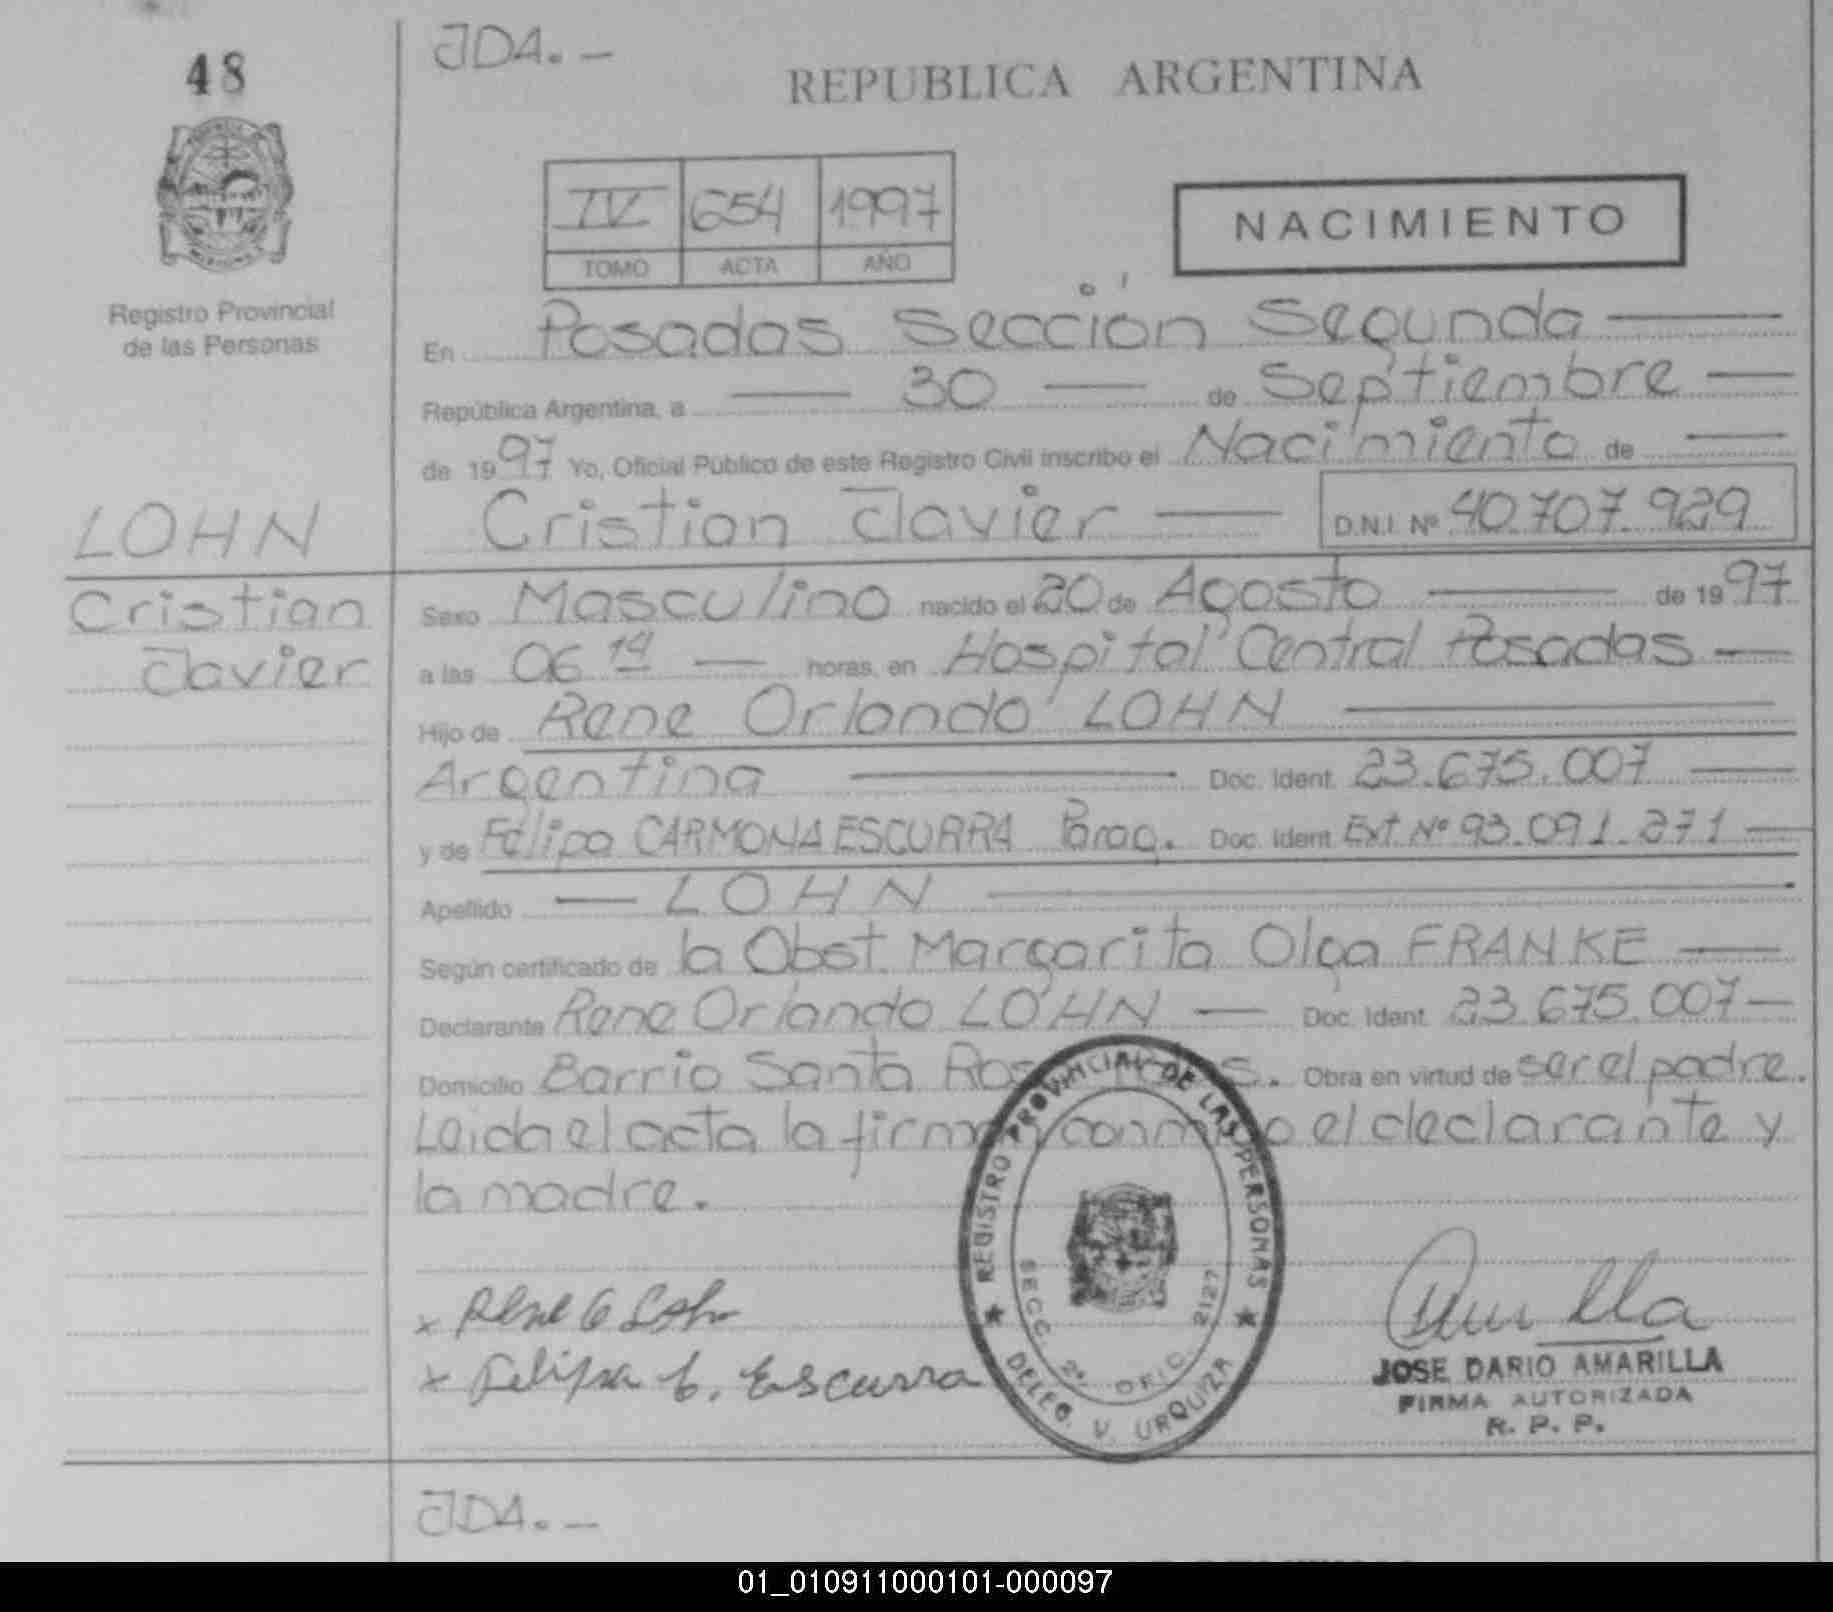 48
JDA. –
REPUBLICA ARGENTINA
IV 654 1997
TOMO ACTA AÑO
NACIMIENTO
Registro Provincial
de las Personas
En Posadas Sección Segunda
República Argentina, a 30 de Septiembre
de 1997 Yo, Oficial Público de este Registro Civil inscribo el Nacimiento de
Cristian Javier D.N.I. Nº 40.707.929
LOHN
Cristian
Javier
Sexo Masculino nacido el 20 de Agosto de 1997
a las 06 14 horas, en Hospital Central Posadas
Hijo de Rene Orlando LOHN
Argentina Doc. Ident. 23.675.007
y de Felipa CARMONA ESCURRA Parag. Doc. Ident. Ext. Nº 93.091.271
Apellido LOHN
Según certificado de la Obst. Margarita Olga FRANKE
Declarante Rene Orlando LOHN Doc. Ident. 23.675.007
Domicilio Barrio Santa Obra en virtud de ser el padre.
Leida el acta la firman conmigo el declarante y
la madre.
REGISTRO PROVINCIAL DE LAS PERSONAS
SECC. 2º OFIC. 2127
DELEG. V. URQUIZA
x Rene O Lohn
x Felipa C. Escurra
JOSE DARIO AMARILLA
FIRMA AUTORIZADA
R. P. P.
JDA. –
01_010911000101-000097